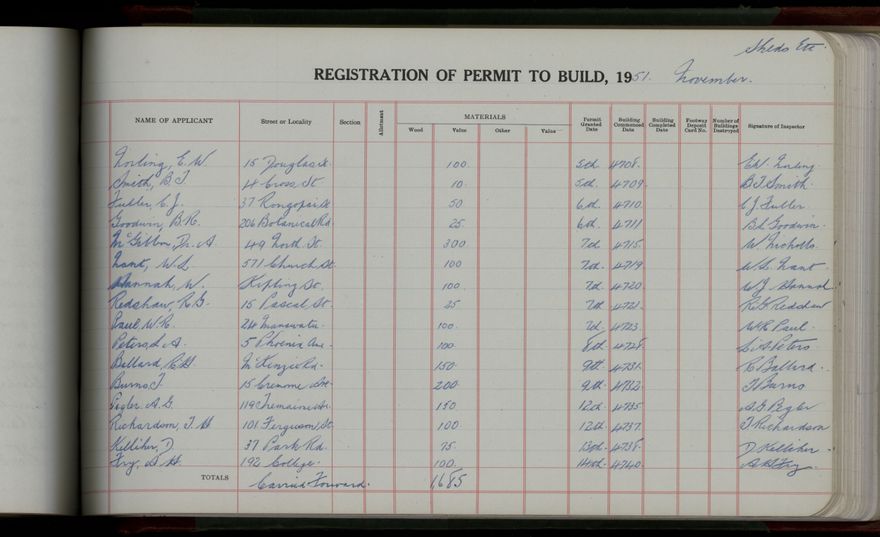 Sheds Etc
REGISTRATION OF PERMIT TO BUILD, 1951. November.
NAME OF APPLICANT Street or Locality Section Allotment MATERIALS Wood Value Other Value Permit Granted Date Building Commenced Date Building Completed Date Footway Deposit Card No. Number of Buildings Destroyed Signature of Inspector
Norling, E. W. 15 Douglas St 100. 5th. 4708. E.W. Norling.
Smith, B. T. 14 Cross St 10. 5th. 4709. B T Smith.
Fuller, C. J. 37 Rongopai St 50 6th. 4710. C J Fuller.
Goodwin, B. R. 206 Botanical Rd. 25. 6th. 4711 Goodwin.
McGibbon, Dr. A. 449 North St. 300 7th 4715 W. Nicholls.
Nant, W. L. 571 Church St. 100 7th. 4719 W. L. Nant.
Hannah, W. Kipling St. 100. 7th 4720. W J Hannah
Redshaw, R. G. 15 Pascal St. 25 7th 4721. R. G Redshaw
Paul, W. R. 24 Manawatu. 100. 7th. 4723. W R Paul.
Peters, L. A. 5 Phoenix Ave. 100. 8th. 4728. L. A Peters
Ballard, R H McKenzie Rd. 150. 9th. 4731. R Ballard.
Burns, T 15 Crewe Ave. 200 9th. 4732. T Burns
Pegler, A. G. 119 Tremaine Av. 150 12th. 4735 A G Pegler
Richardson, T. H 101 Ferguson St. 100 12th. 4737. T Richardson
Kelliher, D 37 Park Rd. 75. 13th. 4738. D Kelliher
Fry, A. H. 192 College. 100. 14th. 4740. A H Fry
TOTALS Carried Forward. 1,685